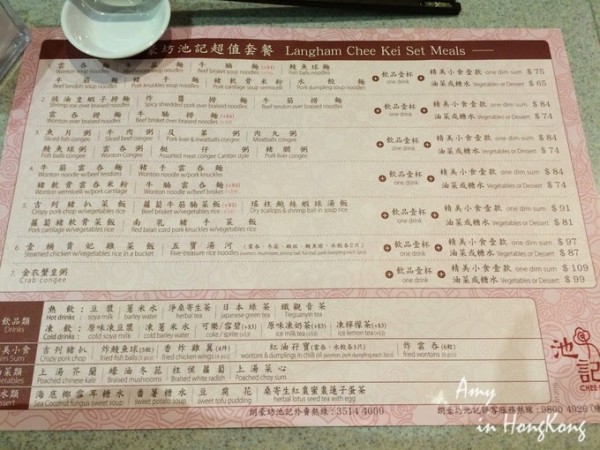 豪坊池記超值套餐 Langham Chee Kei Set Meals
雲吞麵 牛腩麵 鯪魚球麵
Wonton soup noodles Beef brisket soup noodles Fish balls noodles
豬軟骨米粉 水餃麵
Wonton soup noodles Pork knuckles noodles Pork cartilage soup vermicelli Pork dumpling soup noodles
飲品壹杯 one drink
精美小食壹款 one dim sum $75
油菜或糖水 Vegetables or Dessert $65
2. 豉油皇蝦子撈麵 炸醬撈麵 牛筋撈麵
Shrimp roe over braised noodles Spicy shredded pork over braised noodles Beef tendon over braised noodles
雲吞撈麵 牛腩撈麵
Wonton over braised noodles Beef brisket over braised noodles
飲品壹杯 one drink
精美小食壹款 one dim sum $84
油菜或糖水 Vegetables or Dessert $74
3. 魚片粥 牛肉粥 及第粥 肉丸粥
Sliced fish congee Sliced beef congee Pork liver & meatballs congee Meatballs congee
鯪魚球粥 雲吞粥 艇仔粥 豬膶粥
Fish balls congee Wonton Congee Assorted meat congee Canton style Pork liver congee
飲品壹杯 one drink
精美小食壹款 one dim sum $84
油菜或糖水 Vegetables or Dessert $74
4. 牛筋雲吞麵 豬手雲吞麵
Wonton noodle w/beef tendon Wonton noodle w/pork knuckles
豬軟骨雲吞米粉 牛腩雲吞麵(+$3)
Wonton vermicelli w/pork cartilage Wonton noodle w/beef brisket
飲品壹杯 one drink
精美小食壹款 one dim sum $84
油菜或糖水 Vegetables or Dessert $74
5. 吉列豬扒菜飯 蘿蔔牛筋腩菜飯(+$3) 瑤柱鹹蛋蝦球湯飯
Crispy pork chop w/vegetables rice Beef brisket & tendon w/vegetables rice Dry scallops & shrimp ball in soup rice
蘿蔔豬軟骨菜飯 南乳豬手菜飯
Pork cartilage w/vegetables rice Pork knuckles w/vegetables rice
飲品壹杯 one drink
精美小食壹款 one dim sum $91
油菜或糖水 Vegetables or Dessert $81
6. 壹桶貴妃雞菜飯 五寶湯河
Steamed chicken w/vegetables rice in a bucket Five-treasure rice noodles
飲品壹杯 one drink
精美小食壹款 one dim sum $97
油菜或糖水 Vegetables or Dessert $87
7. 金衣蟹皇粥
Crab congee
飲品壹杯 one drink
精美小食壹款 one dim sum $109
油菜或糖水 Vegetables or Dessert $99
飲品類 熱飲：豆漿 薏米水 淨桑寄生茶 日本綠茶 鐵觀音茶
Drinks Hot drinks soya milk barley water herbal tea japanese green tea Tieguanyin tea
凍飲：原味凍豆漿 凍薏米水 可樂/雪碧(+$3) 原味凍奶茶(+$3) 凍檸檬茶(+$3)
Cold drinks cold soya milk cold barley water coke / sprite ice milk tea ice lemon tea
美小食 吉列豬扒 炸鯪魚球 吉香炸雞翼 紅油孖寶 炸雲吞
Crispy pork chop Fried fish balls fried chicken wings wontons & dumplings in chilli oil fried wontons
油菜類 上湯芥蘭 蠔油冬菇 柱侯蘿蔔 上湯菜心
Vegetables Poached chinese kale Braised mushrooms Braised white radish Poached choy sum
糖水類 海底椰雪耳糖水 番薯糖水 豆腐花 桑寄生紅棗蜜棗蓮子蛋茶
Dessert Sea Coconut fungus sweet soup sweet potato soup sweet tofu pudding herbal lotus seed tea with egg
朗豪坊池記外賣熱線：3514 4000
池記
Amy
in HongKong